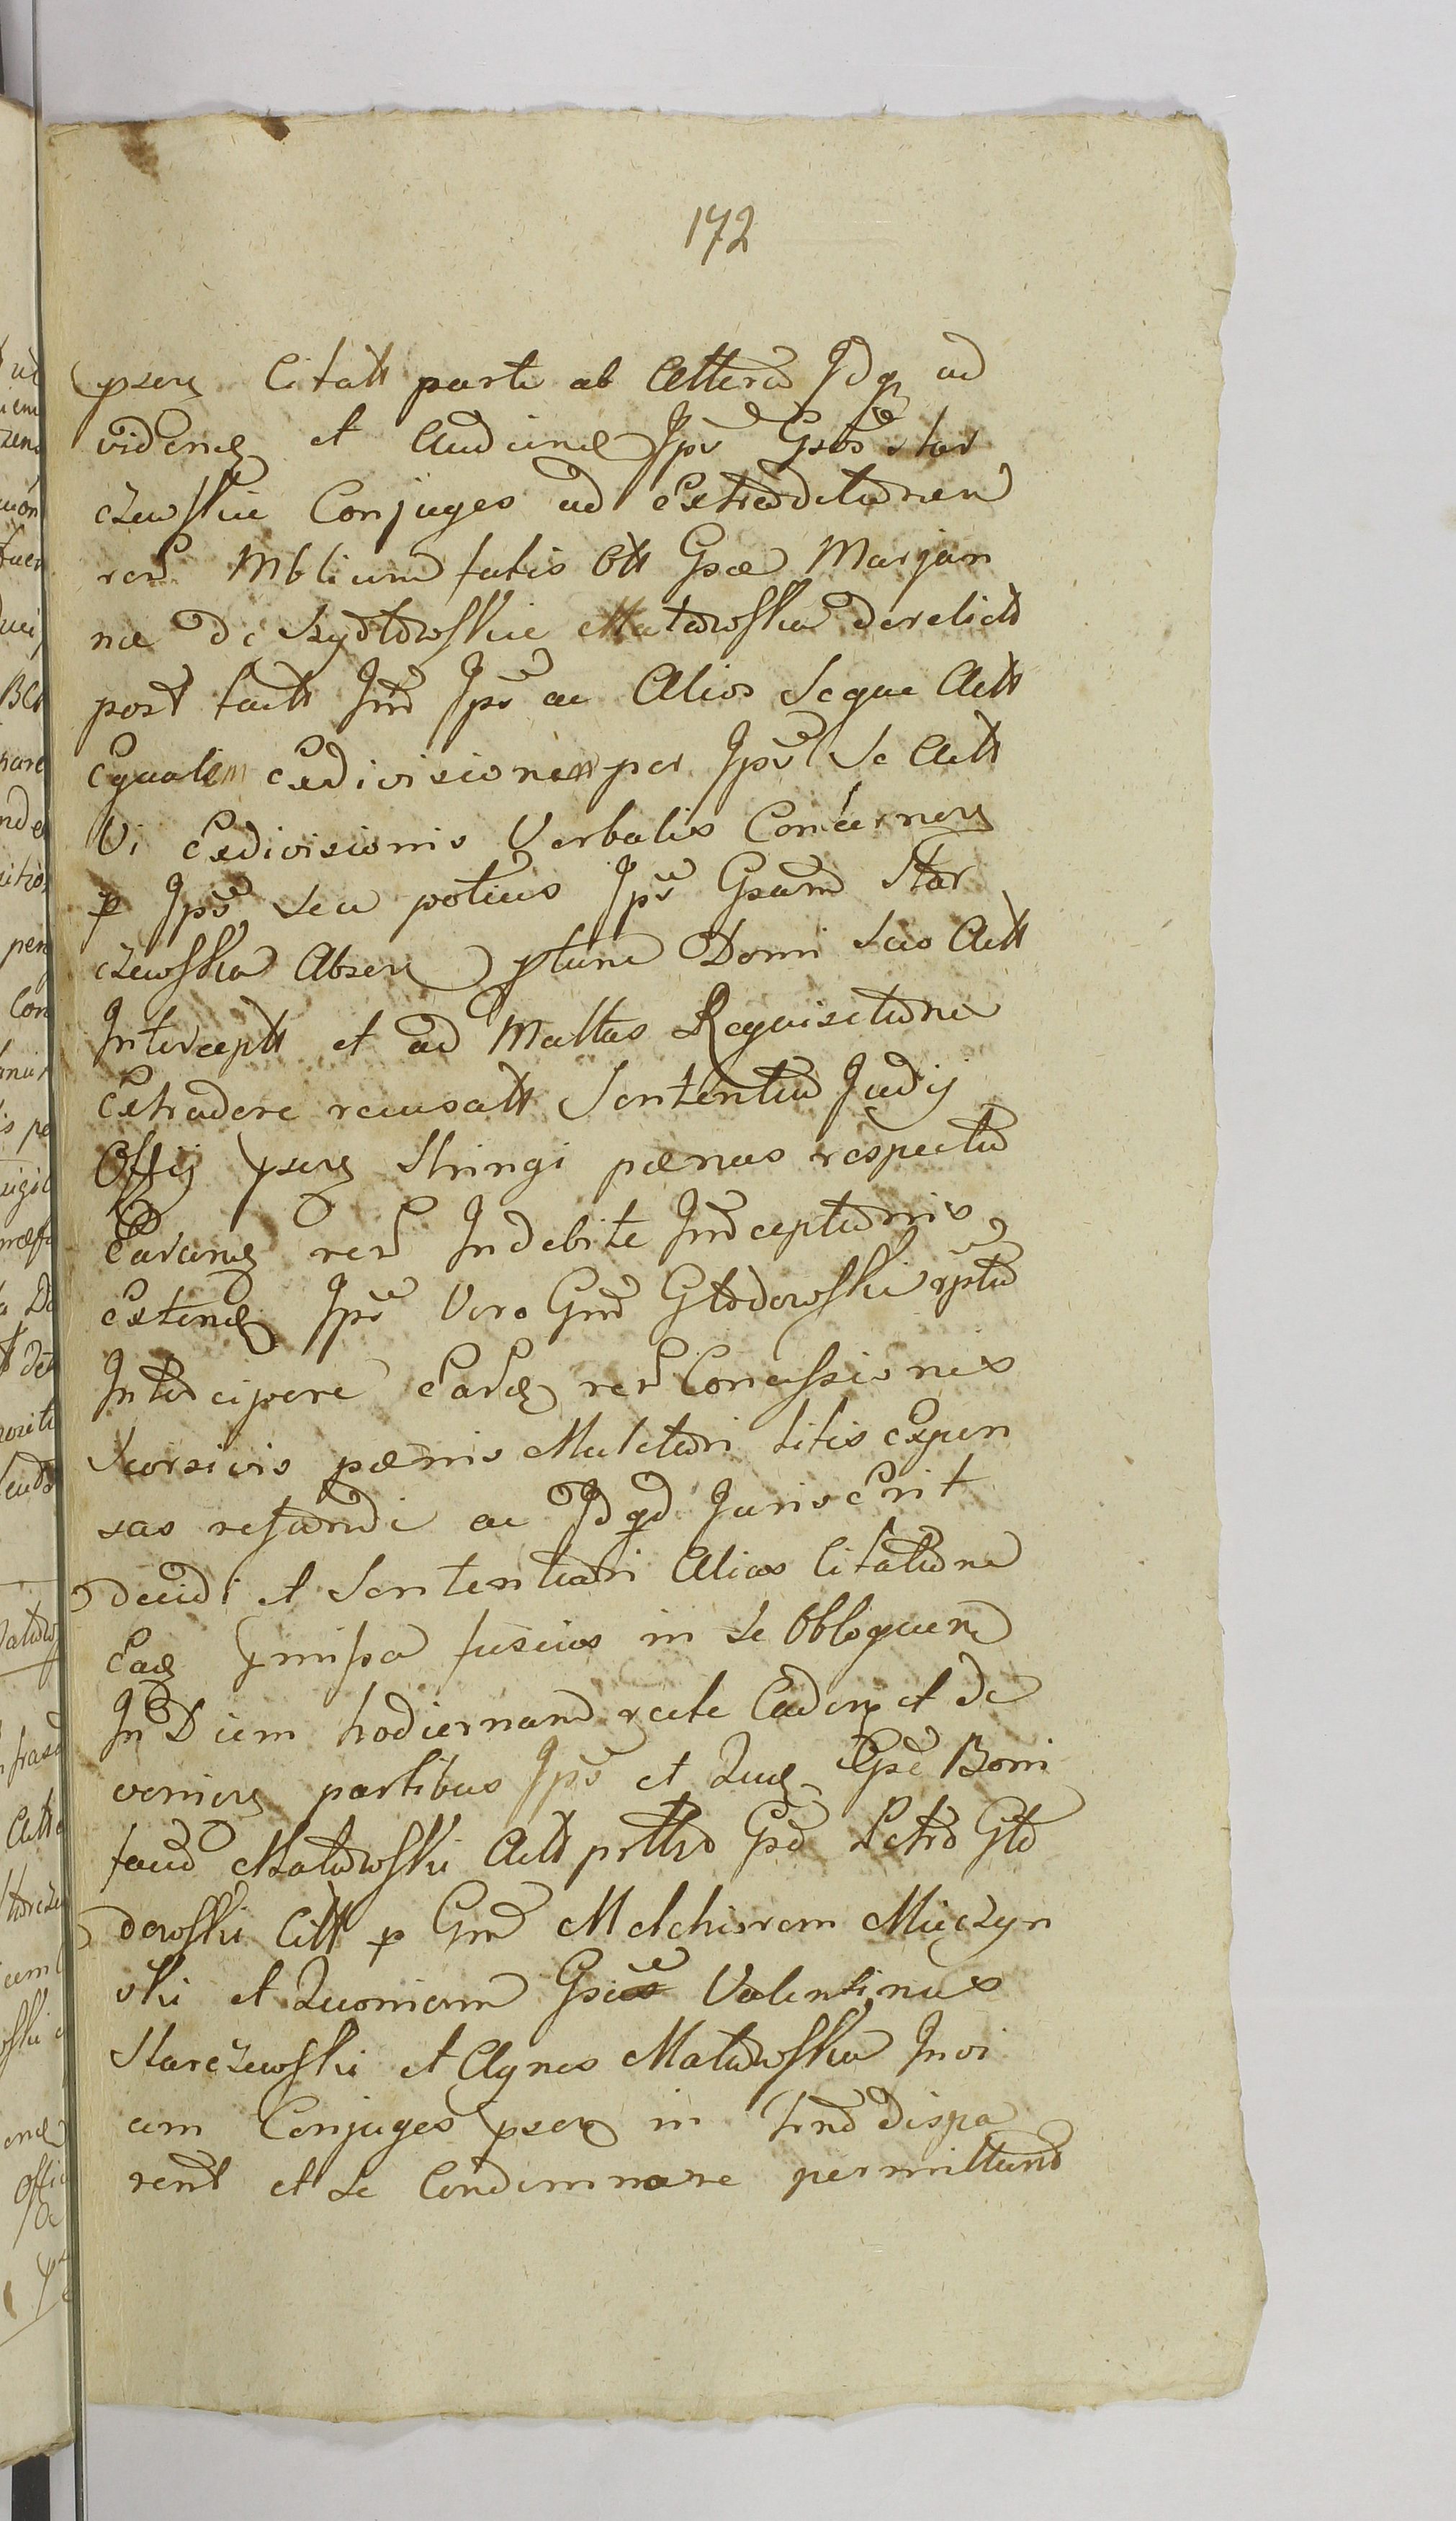 172
psen Citatt parte ab Altera Idq ad
videnq et Audienq Ipos Gsos Star
czewskie Conjuges ad Extraditionem
rerū Mblium fatis Ott Gsae Marjan
nae de Szydłowskie Matowska derelictt
post factt Inr Ipos ac Alios Seque Actt
Equalem Exdivisionem per Ipos Se Actt
Vi Exdivisionis Verbalis Concernen
p Ipos seu potius Ipos Gsam Star
czewska Absen ptunc Domi suo Actt
Interceptt et ad Multas Requisitione
Extradere recusatt Sententia Judij
Offij psen Stringi paenas respectu
Earunq rerū Indebite Interceptionis
extenq Ipos Vero Gnr Głodowski rptu
Intercipere Earq rerū Concessionis
Seorsivis paenis Mulctari litis expen
sas refundi ac Idqd Juris Erit
decidi et Sententiari Alias Citatione
Eaq pmissa fusius in se Obloquen
In Diem hodiernam recte Caden et de
venien partibus Ipis et Quq Gse Boni
facio Matowski Actt prttr Gso Petro Gło
dowski Citt p Gnr Melchiorem Mięczyn
ski et Quoniam Gsi Valentinus
Starczewski et Agnes Matowska Invi
cem Conjuges psen in tno dispa
rent et se Condemnare permittunt